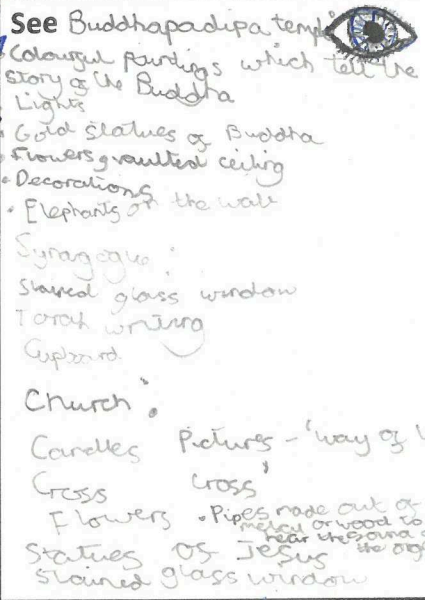 See Buddhapadipa temple
• Colourful paintings which tell the
story of the Buddha
• Lights
• Gold statues of Buddha
• Flowers & vaulted ceiling
• Decorations
• Elephants on the wall
Synagogue:
Stained glass window
Torah writing
Cupboard
Church:
Candles Pictures - 'way of
Cross cross'
Flowers • Pipes made out of
metal or wood to
hear the sound of
the
Statues of Jesus
Stained glass window